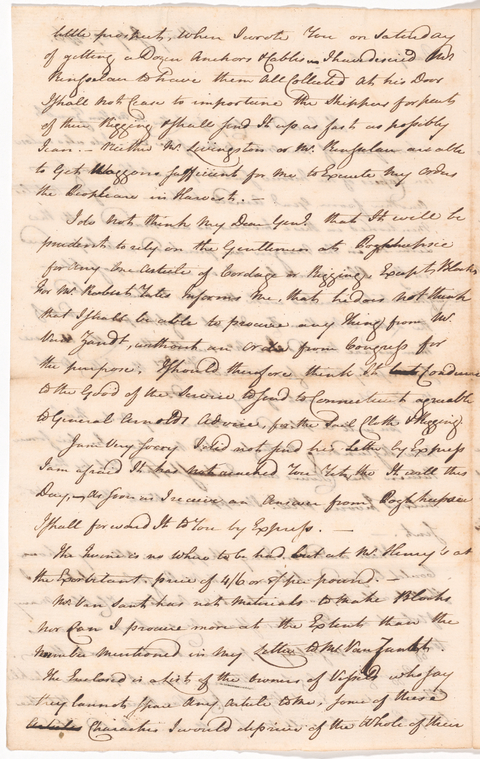 little prospect, When I wrote You on Saturday
of getting a Dozen Anchors & Cables – I have desired Mr
Renselan to have them All Collected At his Door
I shall not Cease to importune the Skippers for parts
of their Rigging & shall send It up as fast as possibly
I can – Neither Mr. Livingston or Mr. Renselan are able
to Get Waggons sufficient for me to Execute my Orders
the People are in Harvest. –
I do not think my Dear Genl. that It will be
prudent to rely on the Gentlemen at Poghkeepsie
for Any One Article of Cordage or Rigging, Except Blocks
for Mr. Robert Yates informs me, that he does not think
that I shall be able to procure any thing from Mr.
Van Zandt, without an Order from Congress for
the purpose. I should therefore think It Conducive
to the Good of the Service to Send to Connecticut agreeable
to General Arnolds Advice, for the Sail Cloth & Rigging
I am Very Sorry I did not send his Letter by Express
I am afraid It has not reached You Yet, the It will this
Day, – As soon as I receive an Answer from Poghkeepsie
I shall forward It to You by Express. –
The Twine is no where to be had but at Mr. Henry's at
the Exorbitant price of 4/6 or 5/ per pound. –
Mr. Van Sants has not Materials to make Blocks
nor Can I procure more at the Extent than the
number mentioned in my Letter to Mr Van Zandt.
The Enclosed is a List of the owners of Vessels who say
they Cannot Spare Any article to me, some of these
Characters I would deprive of the Whole of their